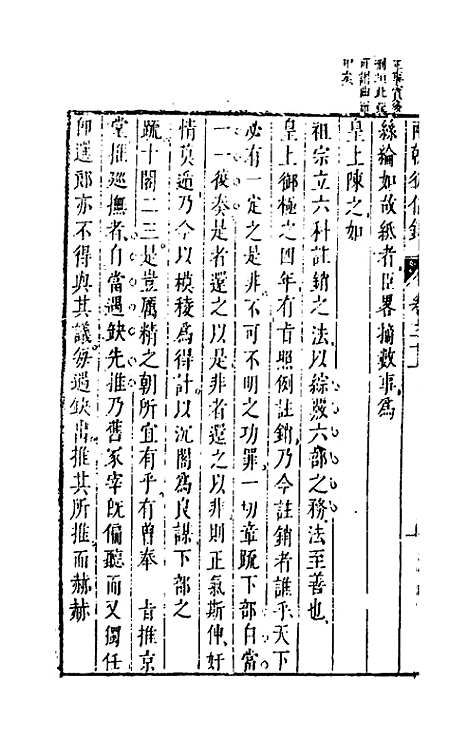 兩朝從信錄
絲綸如故紙者臣畧摘數事爲
皇上陳之如
祖宗立六科註銷之法以綜覈六部之務法至善也
皇上御極之四年有旨照例註銷乃今註銷者誰乎天下
必有一定之是非不可不明之功罪一切章疏下部自當
一一後奏是者還之以是非者還之以非則正氣斯伸奸
情莫遁乃今以模稜爲得計以沉閣爲良謀下部之
疏十閣二三是豈厲精之朝所宜有乎有曾奉 旨推京
堂推巡撫者自當遇缺先推乃舊冢宰旣偏聽而又獨任
卽選郎亦不得與其議每遇缺出推其所推而赫赫